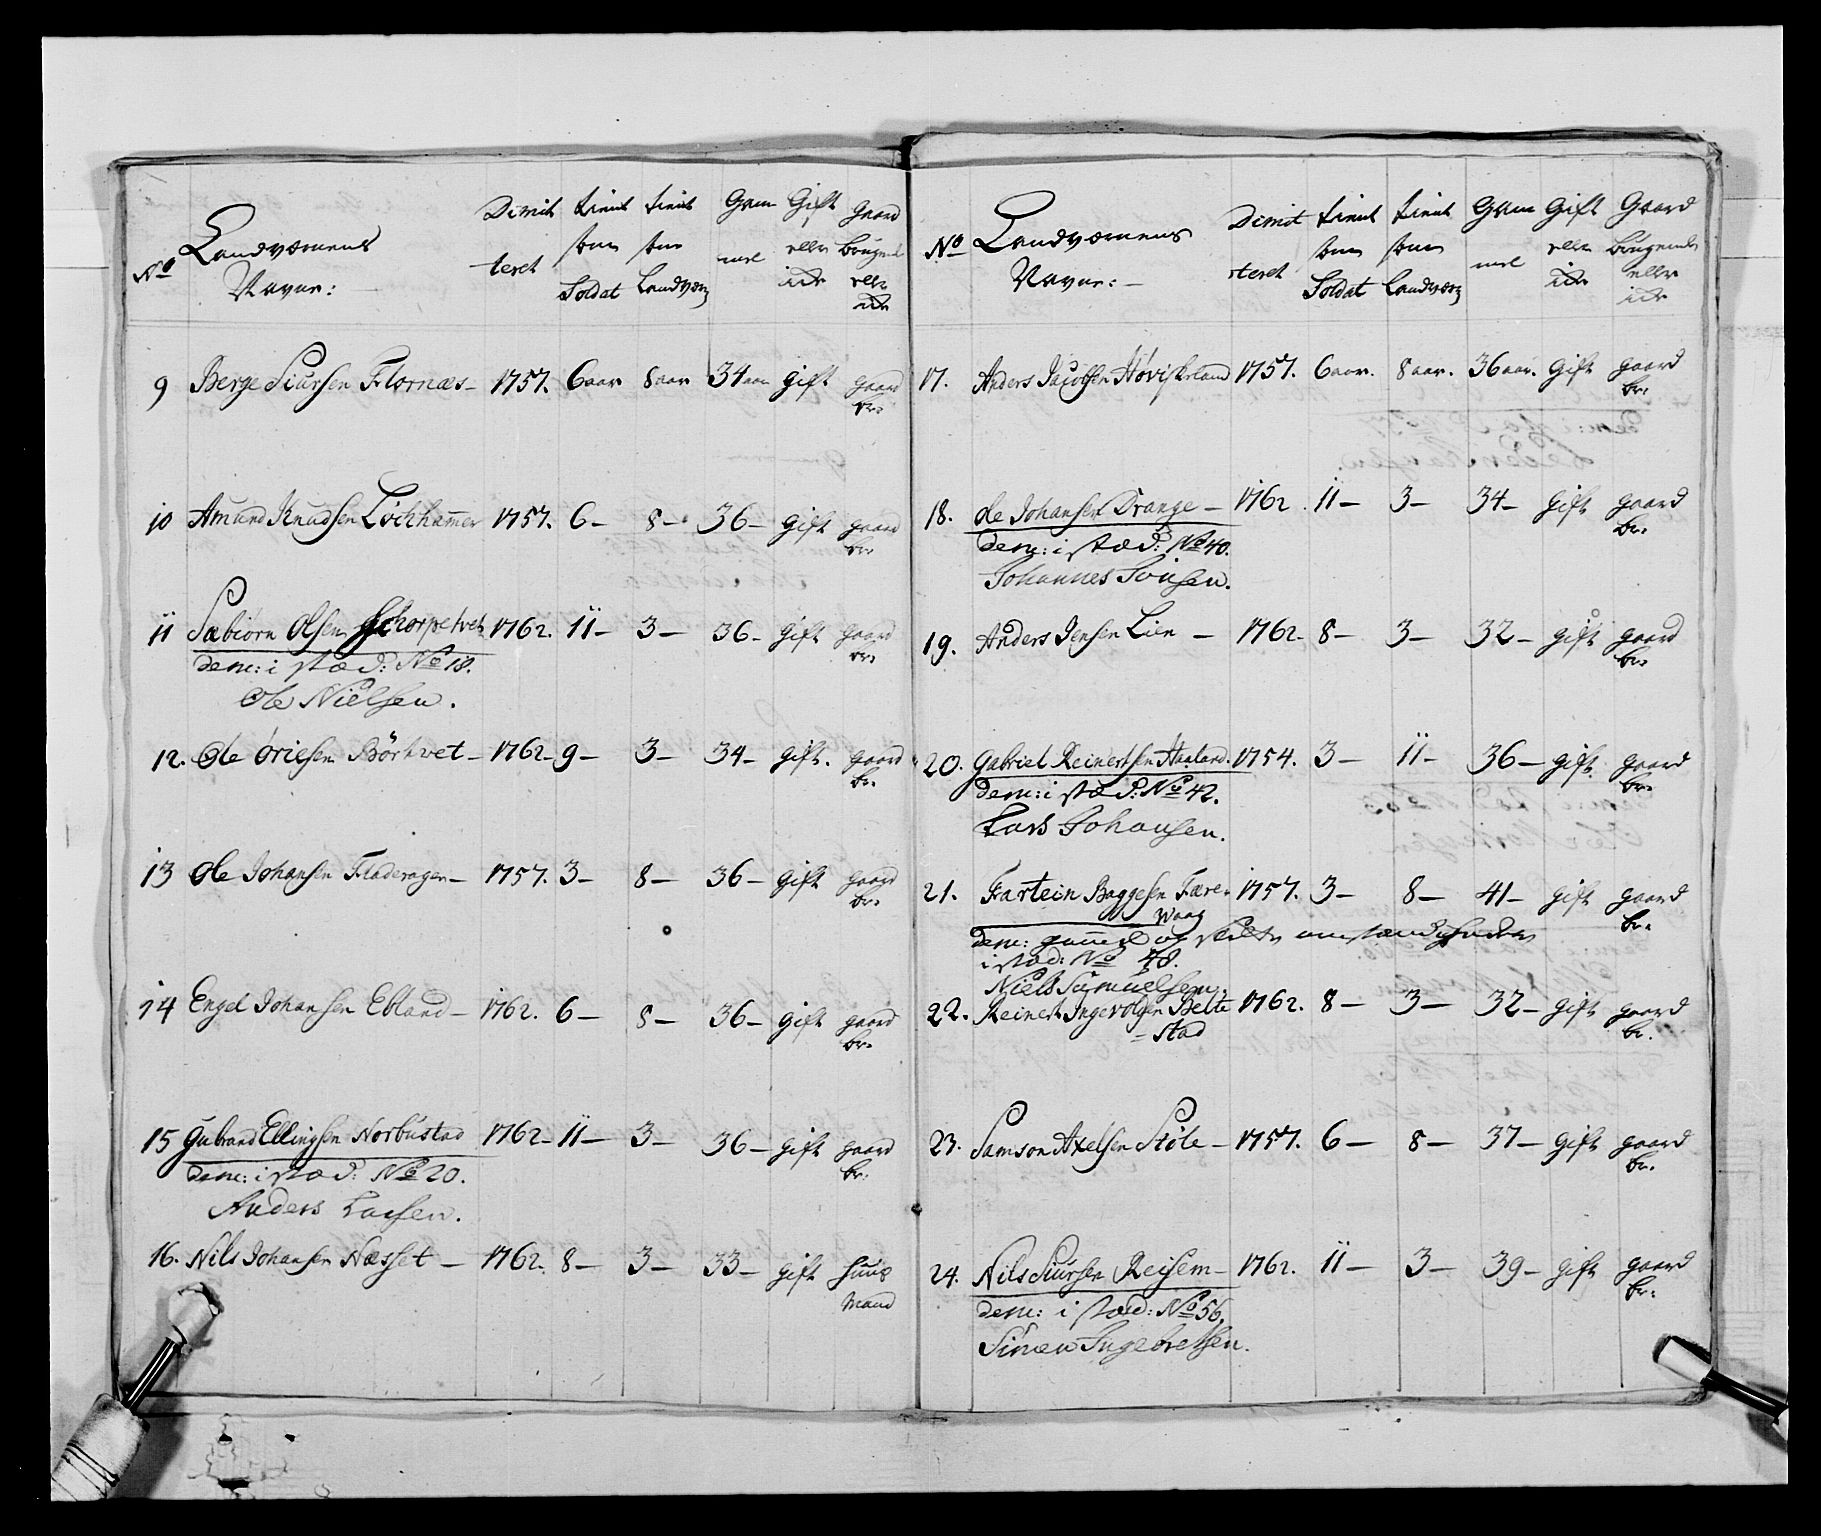 No Landværnens Navne: Dimit teret tient som Soldat tient som Landværn Gam mel Gift eller icke Gaard brugende eller icke
9 Berge Siursen Flornæs 1757. 6 aar 8 aar 34 aar gift gaard br:
10 Amund Knudsen Løchhamer 1757. 6 – 8 – 36 – gift gaard br:
11 Sæbiørn Olsen 1762. 11 – 3 – 36 – gift gaard br:
dem: i stæd: No 18.
Ole Nielsen.
12. Ole Øriesen Børtvet – 1762 – 9 – 3 – 34 – gift. gaard br:
13 Ole Johansen Fladeragen – 1757. 3 – 8 – 36 – gift gaard br:
14 Engel Johansen Ebland – 1762. 6 – 8 – 36 – gift gaard br:
15 Gubrand Ellingsen Norbustad 1762 – 11 – 3 – 36 – gift gaard br:
dem: i stæd: No 20.
Anders Larsen.
16. Nils Johansen Næsset – 1762. 8 – 3 – 33 – gift huus mand
No Landværnens Navne: – Dimit teret tient som Soldat tient som Landværn Gam mel Gift eller icke Gaard brugende eller icke
17. Anders Jacobsen Høviskeland 1757. 6 aar. 8 aar. 36 aar. Gift gaard br:
18. Ole Johansen Drange – 1762. 11 – 3 – 34 – gift gaard br:
dem: i stæd: No 40.
Johannes Torisen.
19. Anders Jensen Lien – 1762 – 8 – 3 – 32 – gift gaard br:
20. Gabriel Reinertsen Haaland. 1754. 3 – 11 – 36 – gift gaard br:
dem: i stæd: No 42.
Lars Johansen.
21. Fartein Baggesen Fære- 1757. 3 – 8 – 41 – gift gaard br:
waag
dem: gammel og slette omstændigheder
i stæd: No 48.
Niels Samuelsen.
22. Reinert Ingevolsen Belte 1762. 8 – 3 – 32 – gift gaard br:
= stad
23. Samson Axelsen Støle – 1757. 6 – 8 – 37 – gift gaard br:
24. Nils Siursen Reisem – 1762. 11 – 3 – 39 – gift gaard br:
dem: i stæd: No 56.
Simen Ingebretsen.